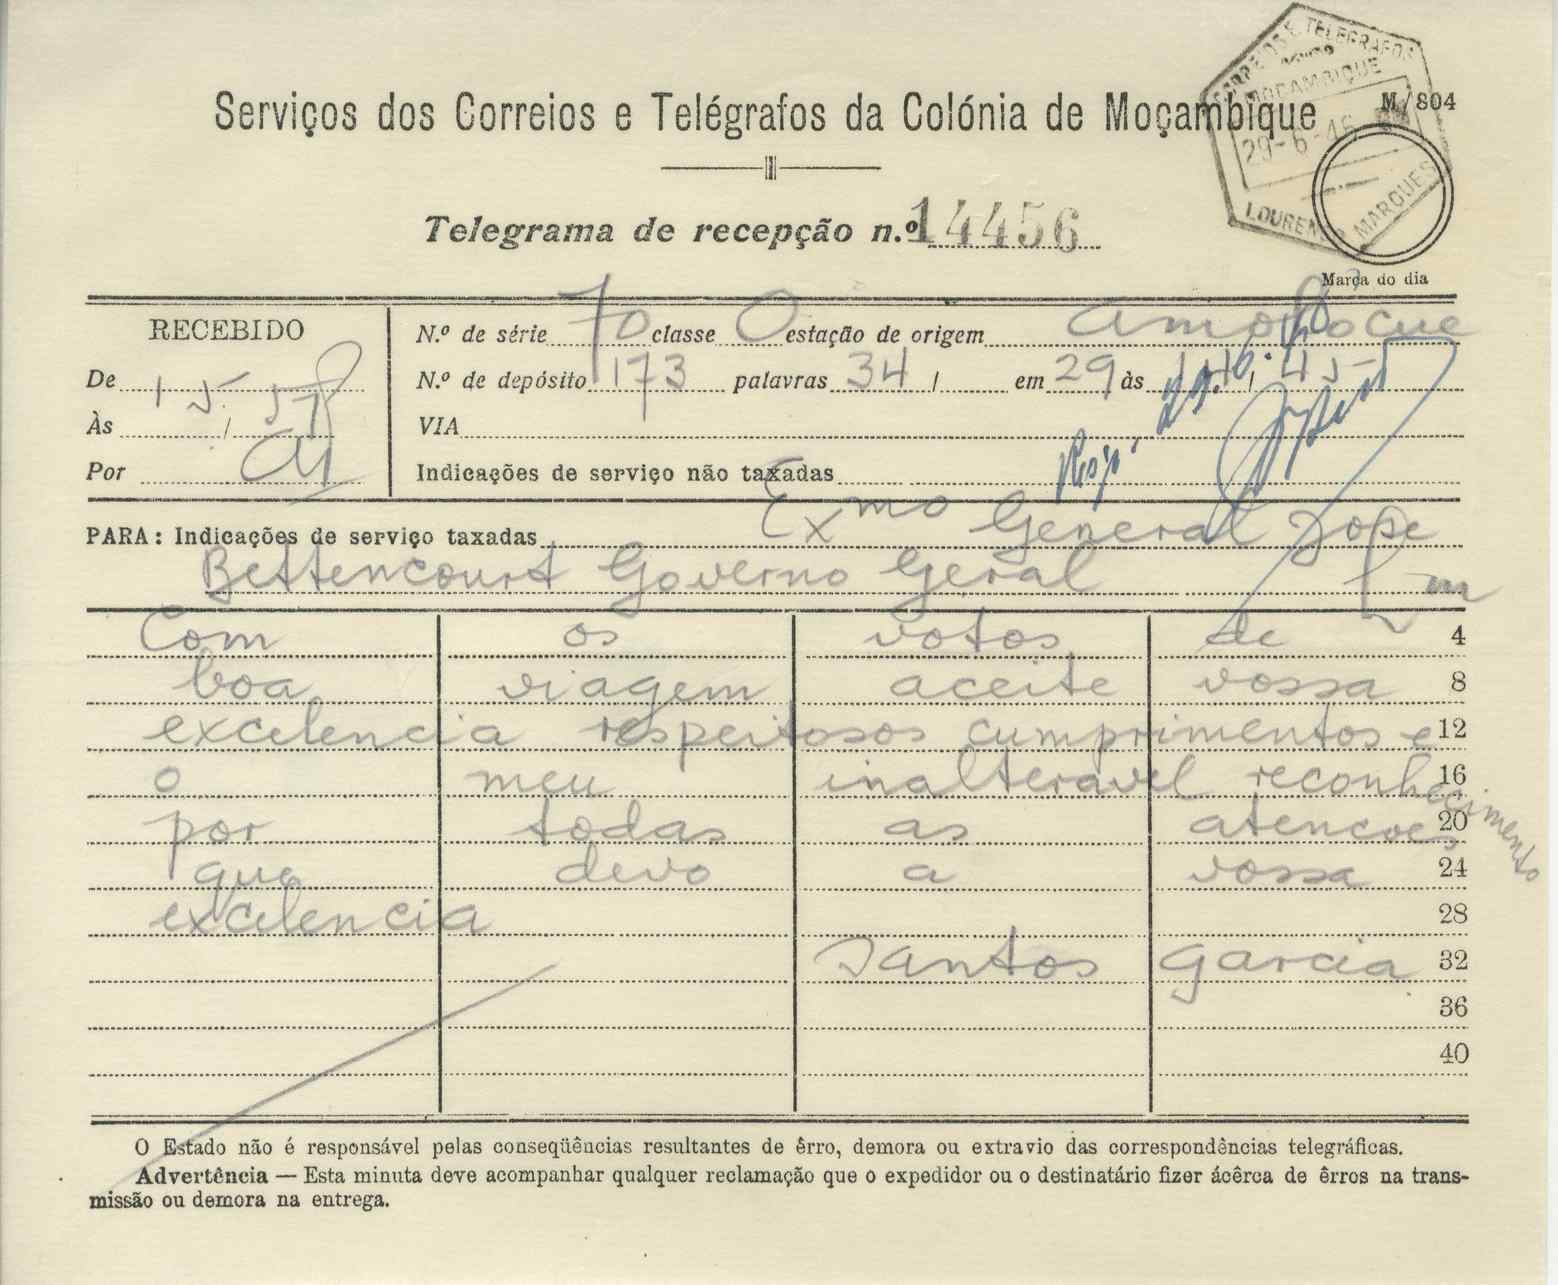 CORREIOS E TELEGRAFOS
MOÇAMBIQUE
29-6-46
LOURENÇO MARQUES
M/804
Serviços dos Correios e Telégrafos da Colónia de Moçambique
Telegrama de recepção n.º 14456
Marca do dia
RECEBIDO
De
Às /
Por
N.º de série 70 classe O estação de origem
N.º de depósito 173 palavras 34 / em 29 às 14 / 45
VIA
Indicações de serviço não taxadas
PARA: Indicações de serviço taxadas Exmo General Lope
Bettencourt Governo Geral Lm
Com os votos de 4
boa viagem aceite vossa 8
excelencia respeitosos cumprimentos e 12
o meu inalteravel reconhecimento 16
por todas as atencoes 20
que devo a vossa 24
excelencia 28
Santos Garcia 32
36
40
O Estado não é responsável pelas conseqüências resultantes de êrro, demora ou extravio das correspondências telegráficas.
Advertência — Esta minuta deve acompanhar qualquer reclamação que o expedidor ou o destinatário fizer ácêrca de êrros na trans-
missão ou demora na entrega.